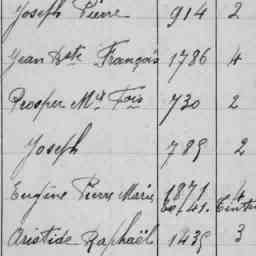 Joseph Pierre 914 2
Jean Bte François 1786 4
Prosper Mie Fois 730 2
Joseph 789 2
Eugène Pierre Marie 1871 4
41.
Aristide Raphaël 1439 3